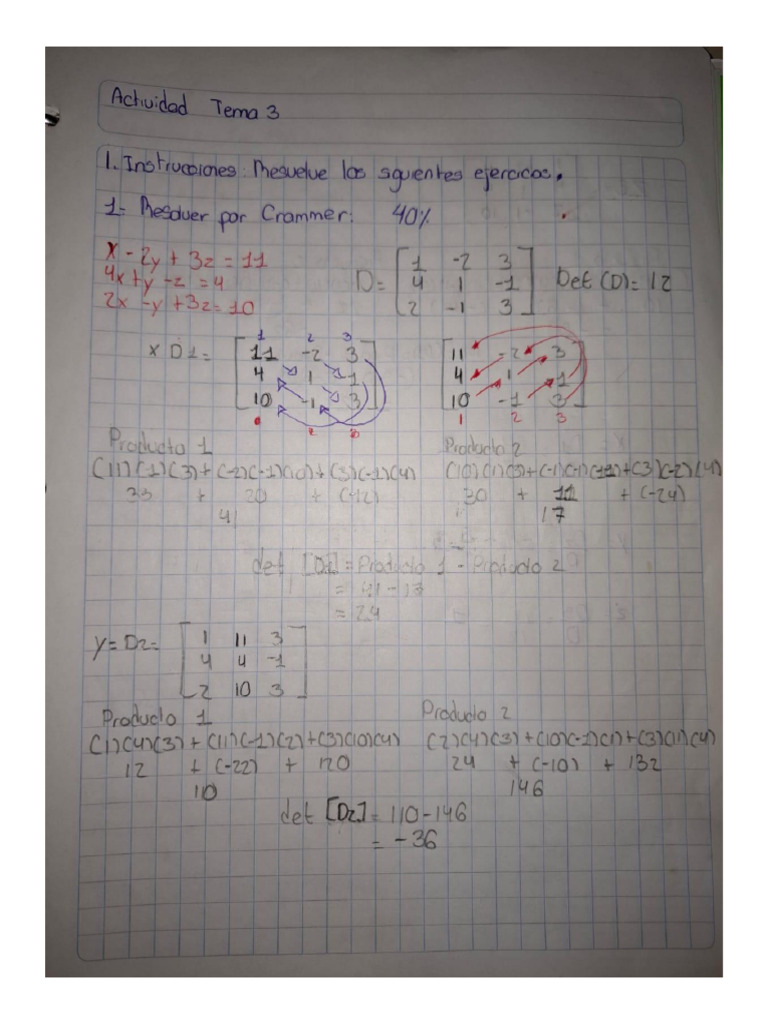 Actividad Tema 3
1. Instrucciones: Resuelve los siguentes ejercicios.
1- Resolver por Crammer: 40%
x - 2y + 3z = 11
4x + y - z = 4
2x - y + 3z = 10
D= [ 1 -2 3
4 1 -1
2 -1 3 ] Det (D) = 12
1 2 3
x D1 = [ 11 -2 3
4 1 -1
10 -1 3 ]
1 2 3
[ 11 -2 3
4 1 -1
10 -1 3 ]
1 2 3
Producto 1
(11)(1)(3)+(-2)(-1)(10)+(3)(-1)(4)
33 + 20 + (-12)
41
Producto 2
(10)(1)(3)+(-1)(-1)(11)+(3)(-2)(4)
30 + 11 + (-24)
17
det [D1] = Producto 1 - Producto 2
= 41 - 17
= 24
y = D2 = [ 1 11 3
4 4 -1
2 10 3 ]
Producto 1
(1)(4)(3) + (11)(-1)(2)+(3)(10)(4)
12 + (-22) + 120
110
Producto 2
(2)(4)(3)+(10)(-1)(1)+(3)(11)(4)
24 + (-10) + 132
146
det [D2] = 110 - 146
= -36